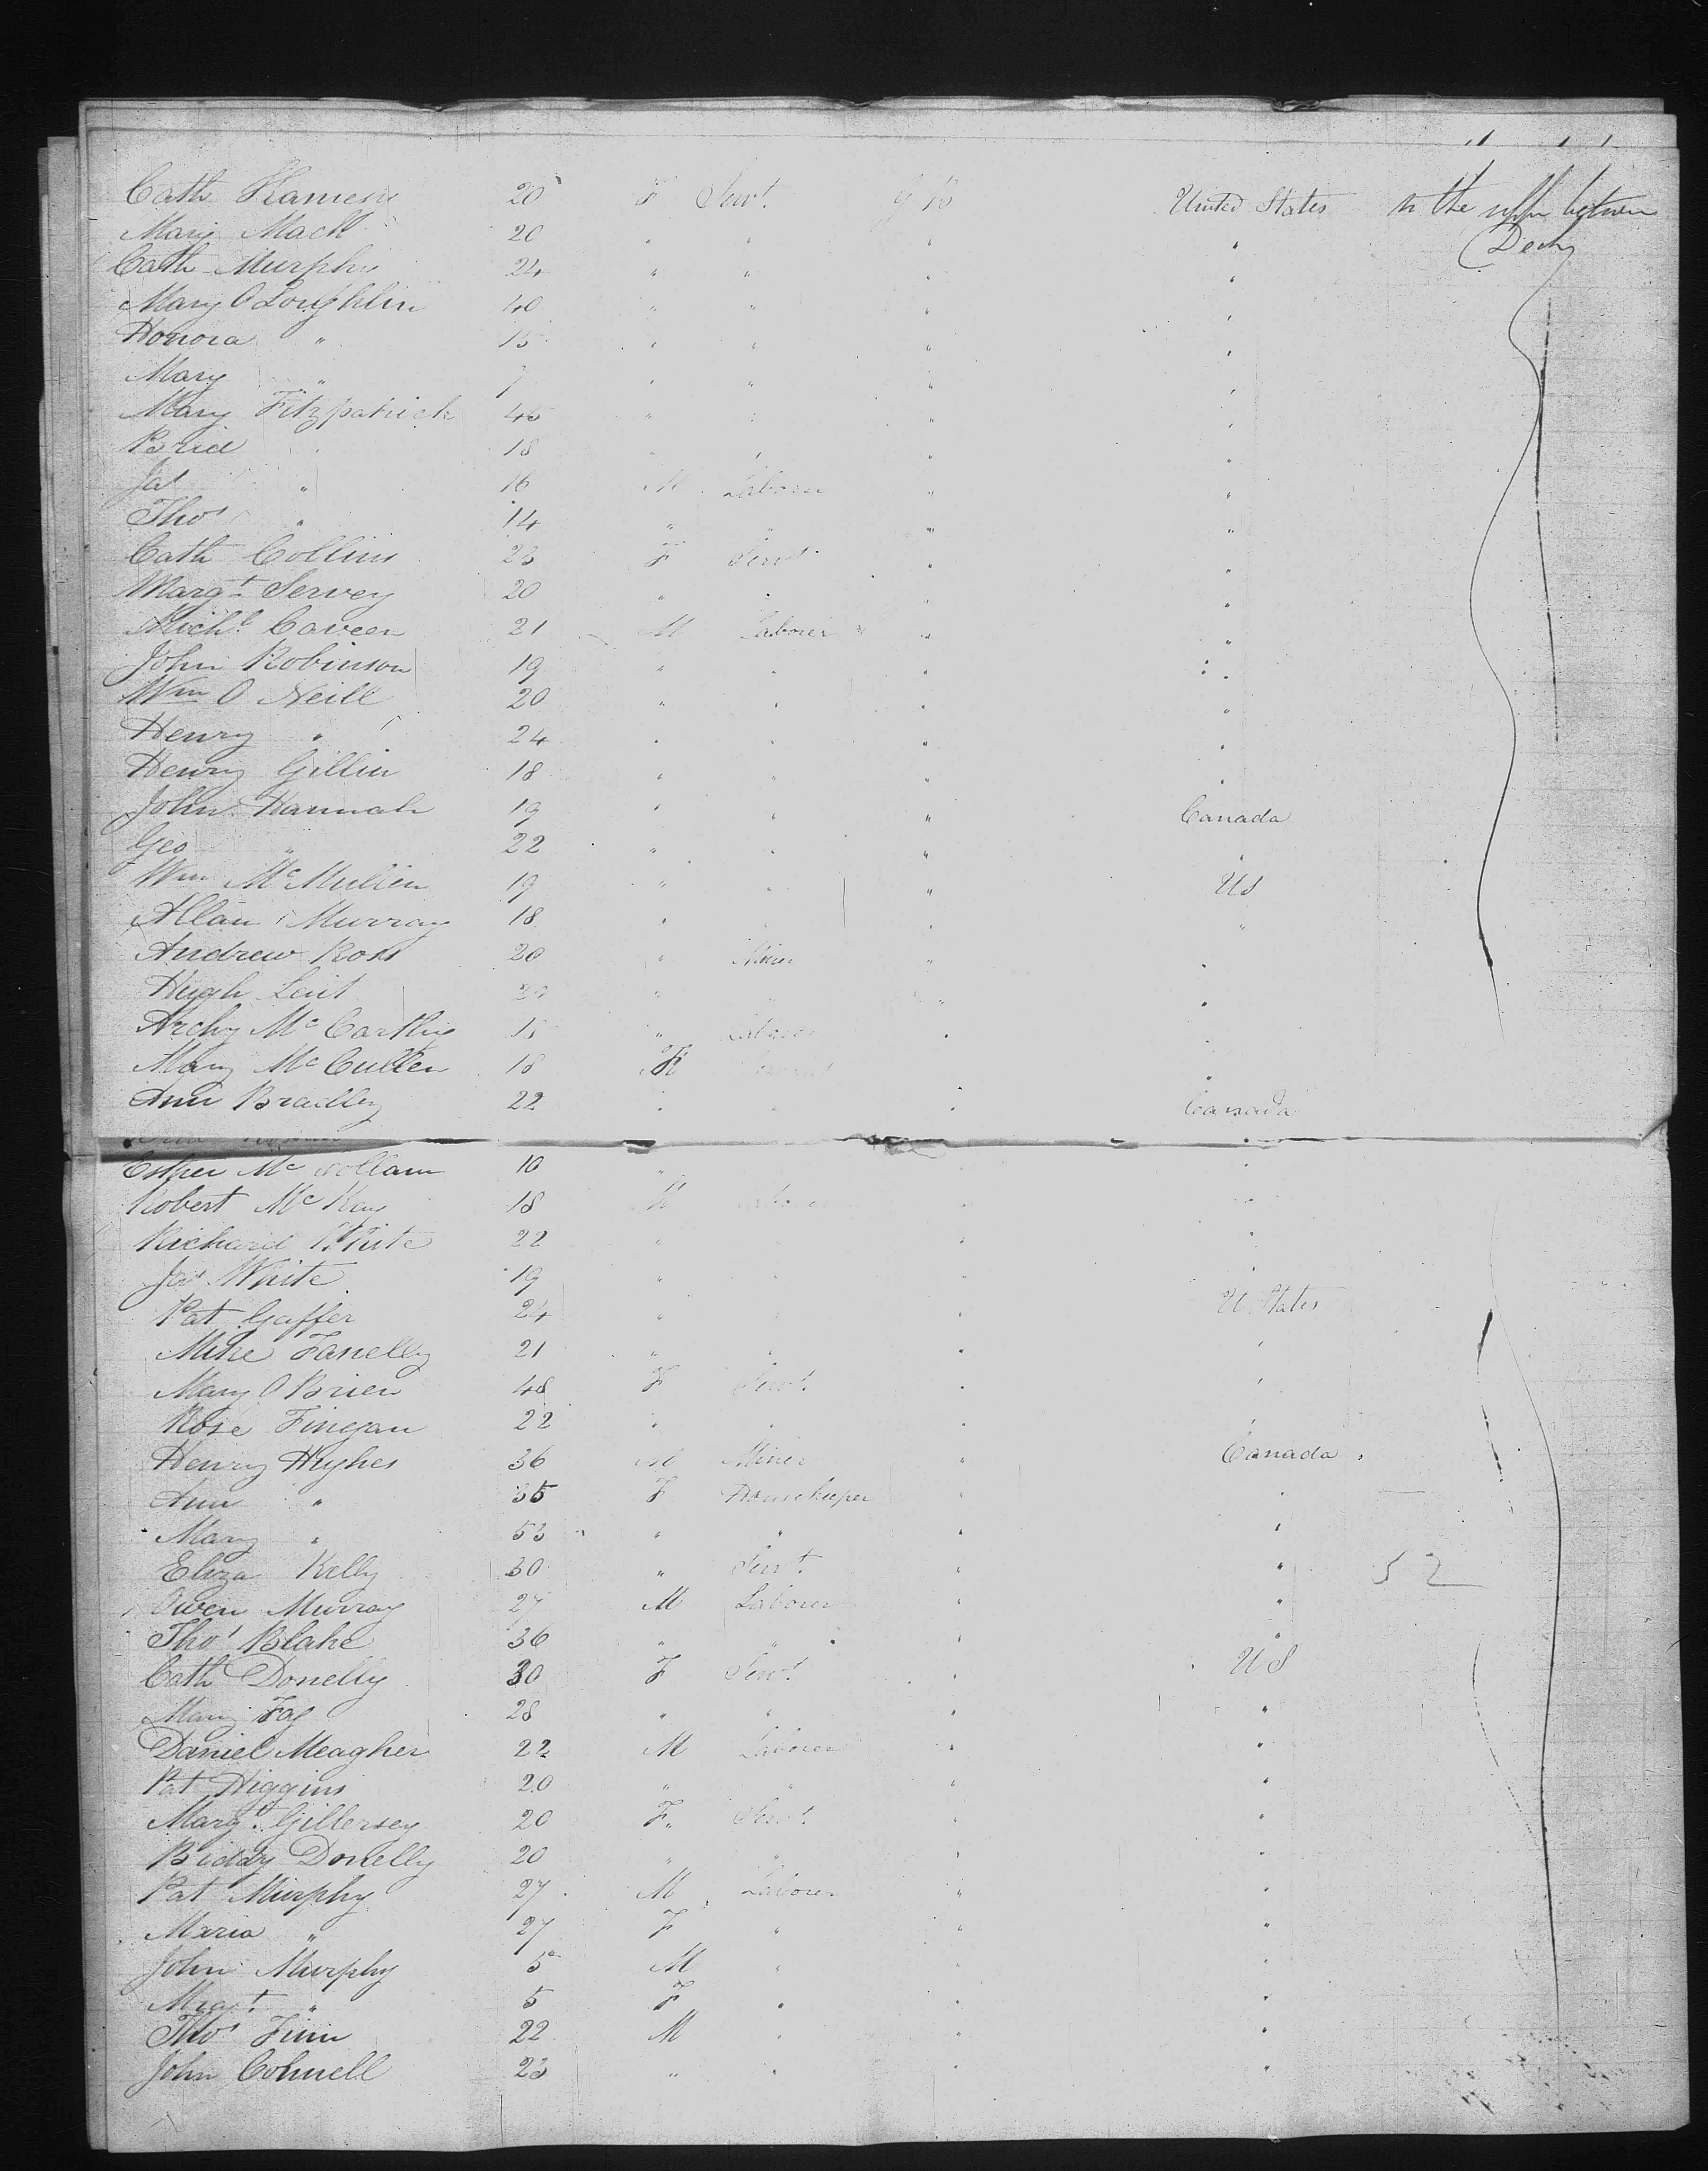 Cath 20 F Servt. G B United States in the upper between
Mary Mack 20 " " " " Decks
Cath Murphy 24 " " " "
Mary O Loughlin 40 " " " "
Honora " 15 " " " "
Mary " " " " "
Mary Fitzpatrick 45 " " " "
Brid " 18 " " " "
Jas " 16 M Laborer " "
Thos " 14 " " " "
Cath Collins 23 F Servt " "
Margt Servey 20 " " " "
Michl Caveen 21 M Laborer " "
John Robinson 19 " " " "
Wm O Neill 20 " " " "
Henry " 24 " " " "
Henry Gillin 18 " " " "
John Hannah 19 " " " Canada
Geo " 22 " " " "
Wm McMullen 19 " " " US
Allan Murray 18 " " " "
Andrew Ross 20 " Miner " "
Hugh " " "
Archy McCarthy 15 " Laborer " "
Mary McCullen 18 F " "
Ann Bradley 22 " " " Canada
Esther Mc 10 " " "
Robert McKay 18 M " "
Richard White 22 " " "
Jas White 19 " " " "
Pat Gaffer 24 " " U States
Mike Fanelly 21 " " " "
Mary O Brien 48 F Servt. " "
Rose Finegan 22 " " " "
Henry Hughes 36 M Miner " Canada
Ann " 35 F Housekeeper " "
Mary " 53 " " " "
Eliza Kelly 30 " Servt. " " 52
Owen Murray 27 M Laborer " "
Thos Blake 36 " " " "
Cath Donelly 30 F Servt. " US
Mary Foy 28 " " " "
Daniel Meagher 22 M Laborer " "
Pat Higgins 20 " " " "
Margt. Gillersey 20 F Servt. " "
Biddy Donelly 20 " " " "
Pat Murphy 27 M Laborer " "
Maria " 27 F " " "
John Murphy 5 M " "
Margt " 5 F " " "
Thos Finn 22 M " " "
John Cohnell 23 " " " "